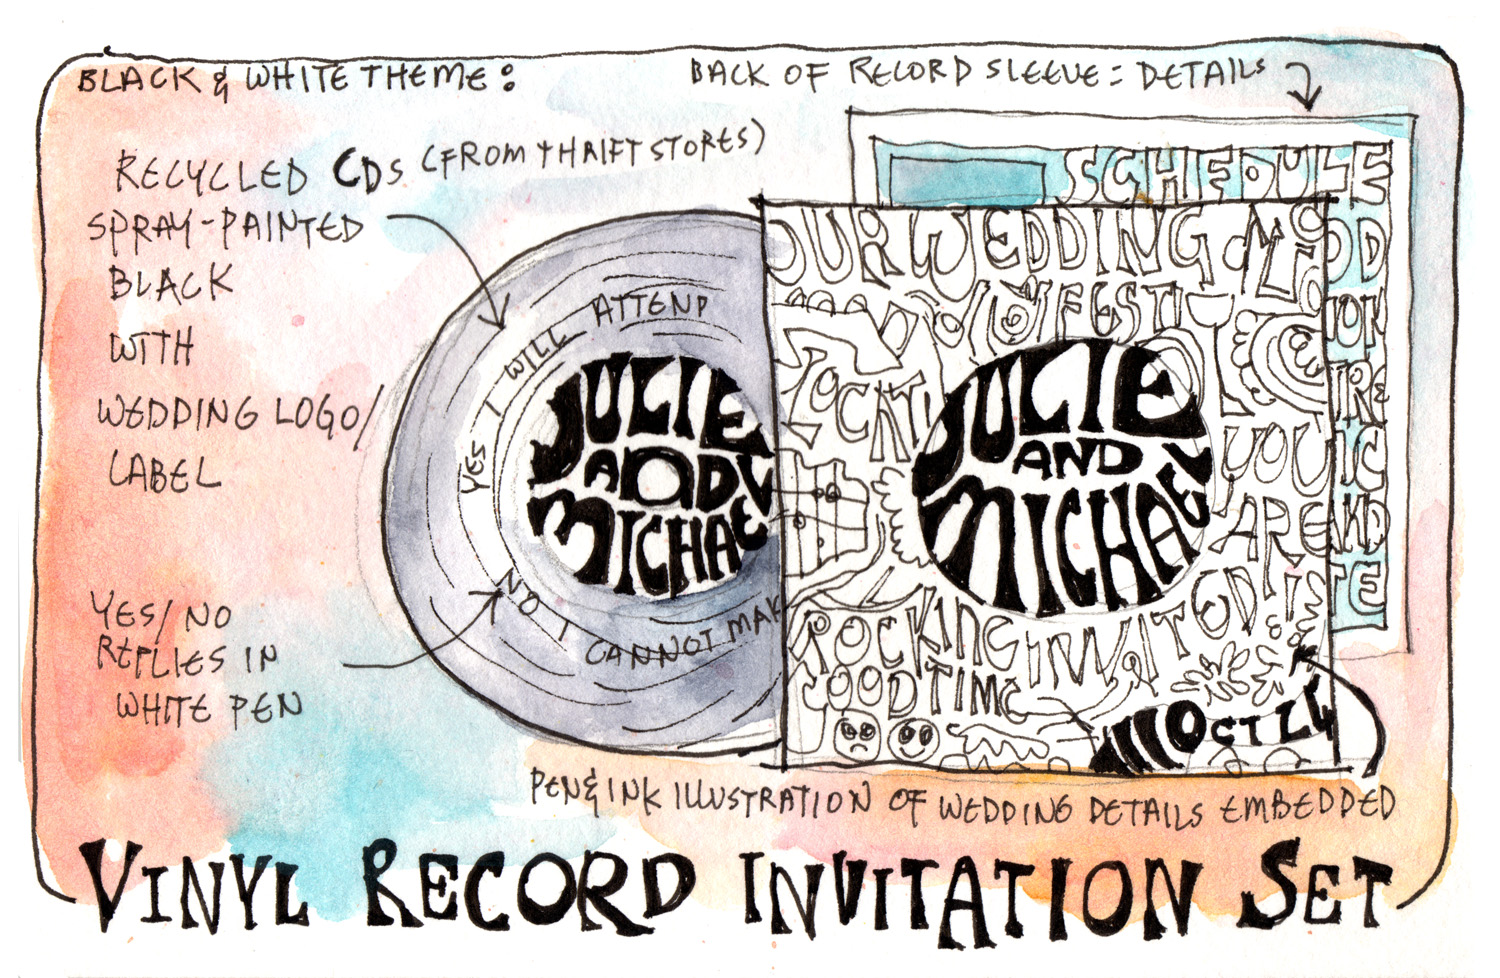 BLACK & WHITE THEME:
BACK OF RECORD SLEEVE: DETAILS
RECYCLED CDS (FROM THRIFT STORES)
SPRAY-PAINTED
BLACK
WITH
WEDDING LOGO/
LABEL
YES/NO
REPLIES IN
WHITE PEN
YES I WILL ATTEND
JULIE
AND
MICHAEL
NO I CANNOT MAK
SCHEDULE
OUR WEDDING
FEST
JULIE
AND
MICHAEL
YOU
ARE
INVITED
ROCKING
GOOD TIME
OCT 14
PEN & INK ILLUSTRATION OF WEDDING DETAILS EMBEDDED
VINYL RECORD INVITATION SET